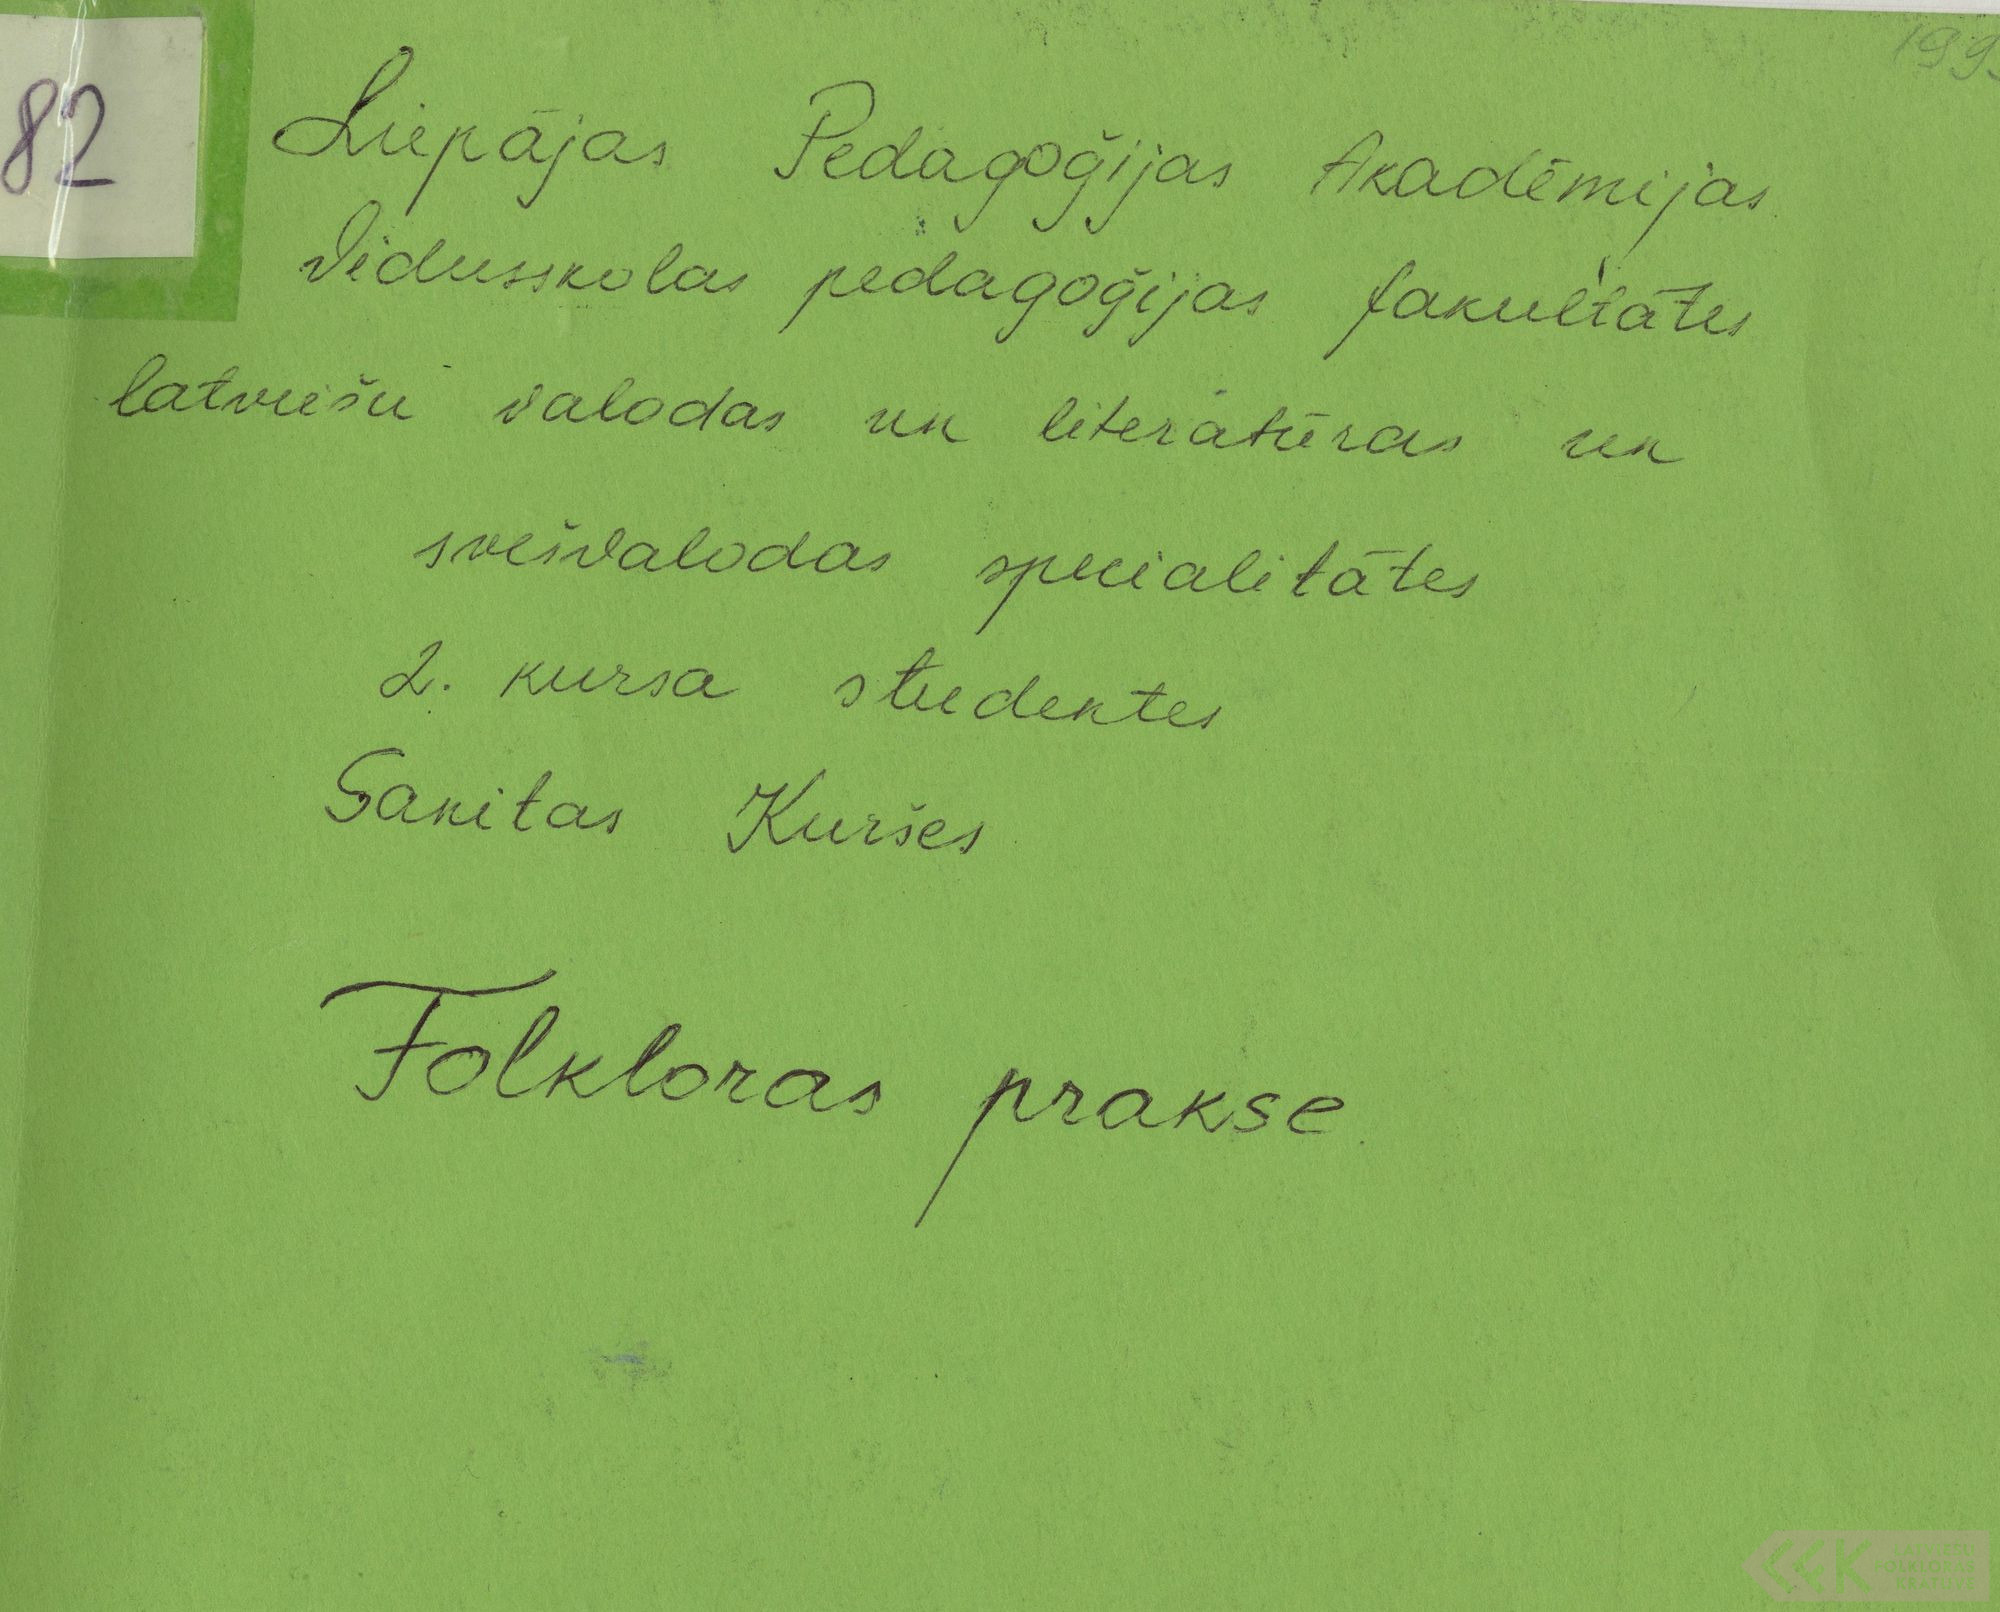 82
Liepājas Pedagoģijas Akadēmijas
Vidusskolas pedagoģijas fakultātes
latviešu valodas un literatūras un
svešvalodas specialitātes
2. kursa studentes
Sanitas Kuršes
Folkloras prakse
LATVIEŠU
FOLKLORAS
KRĀTUVE